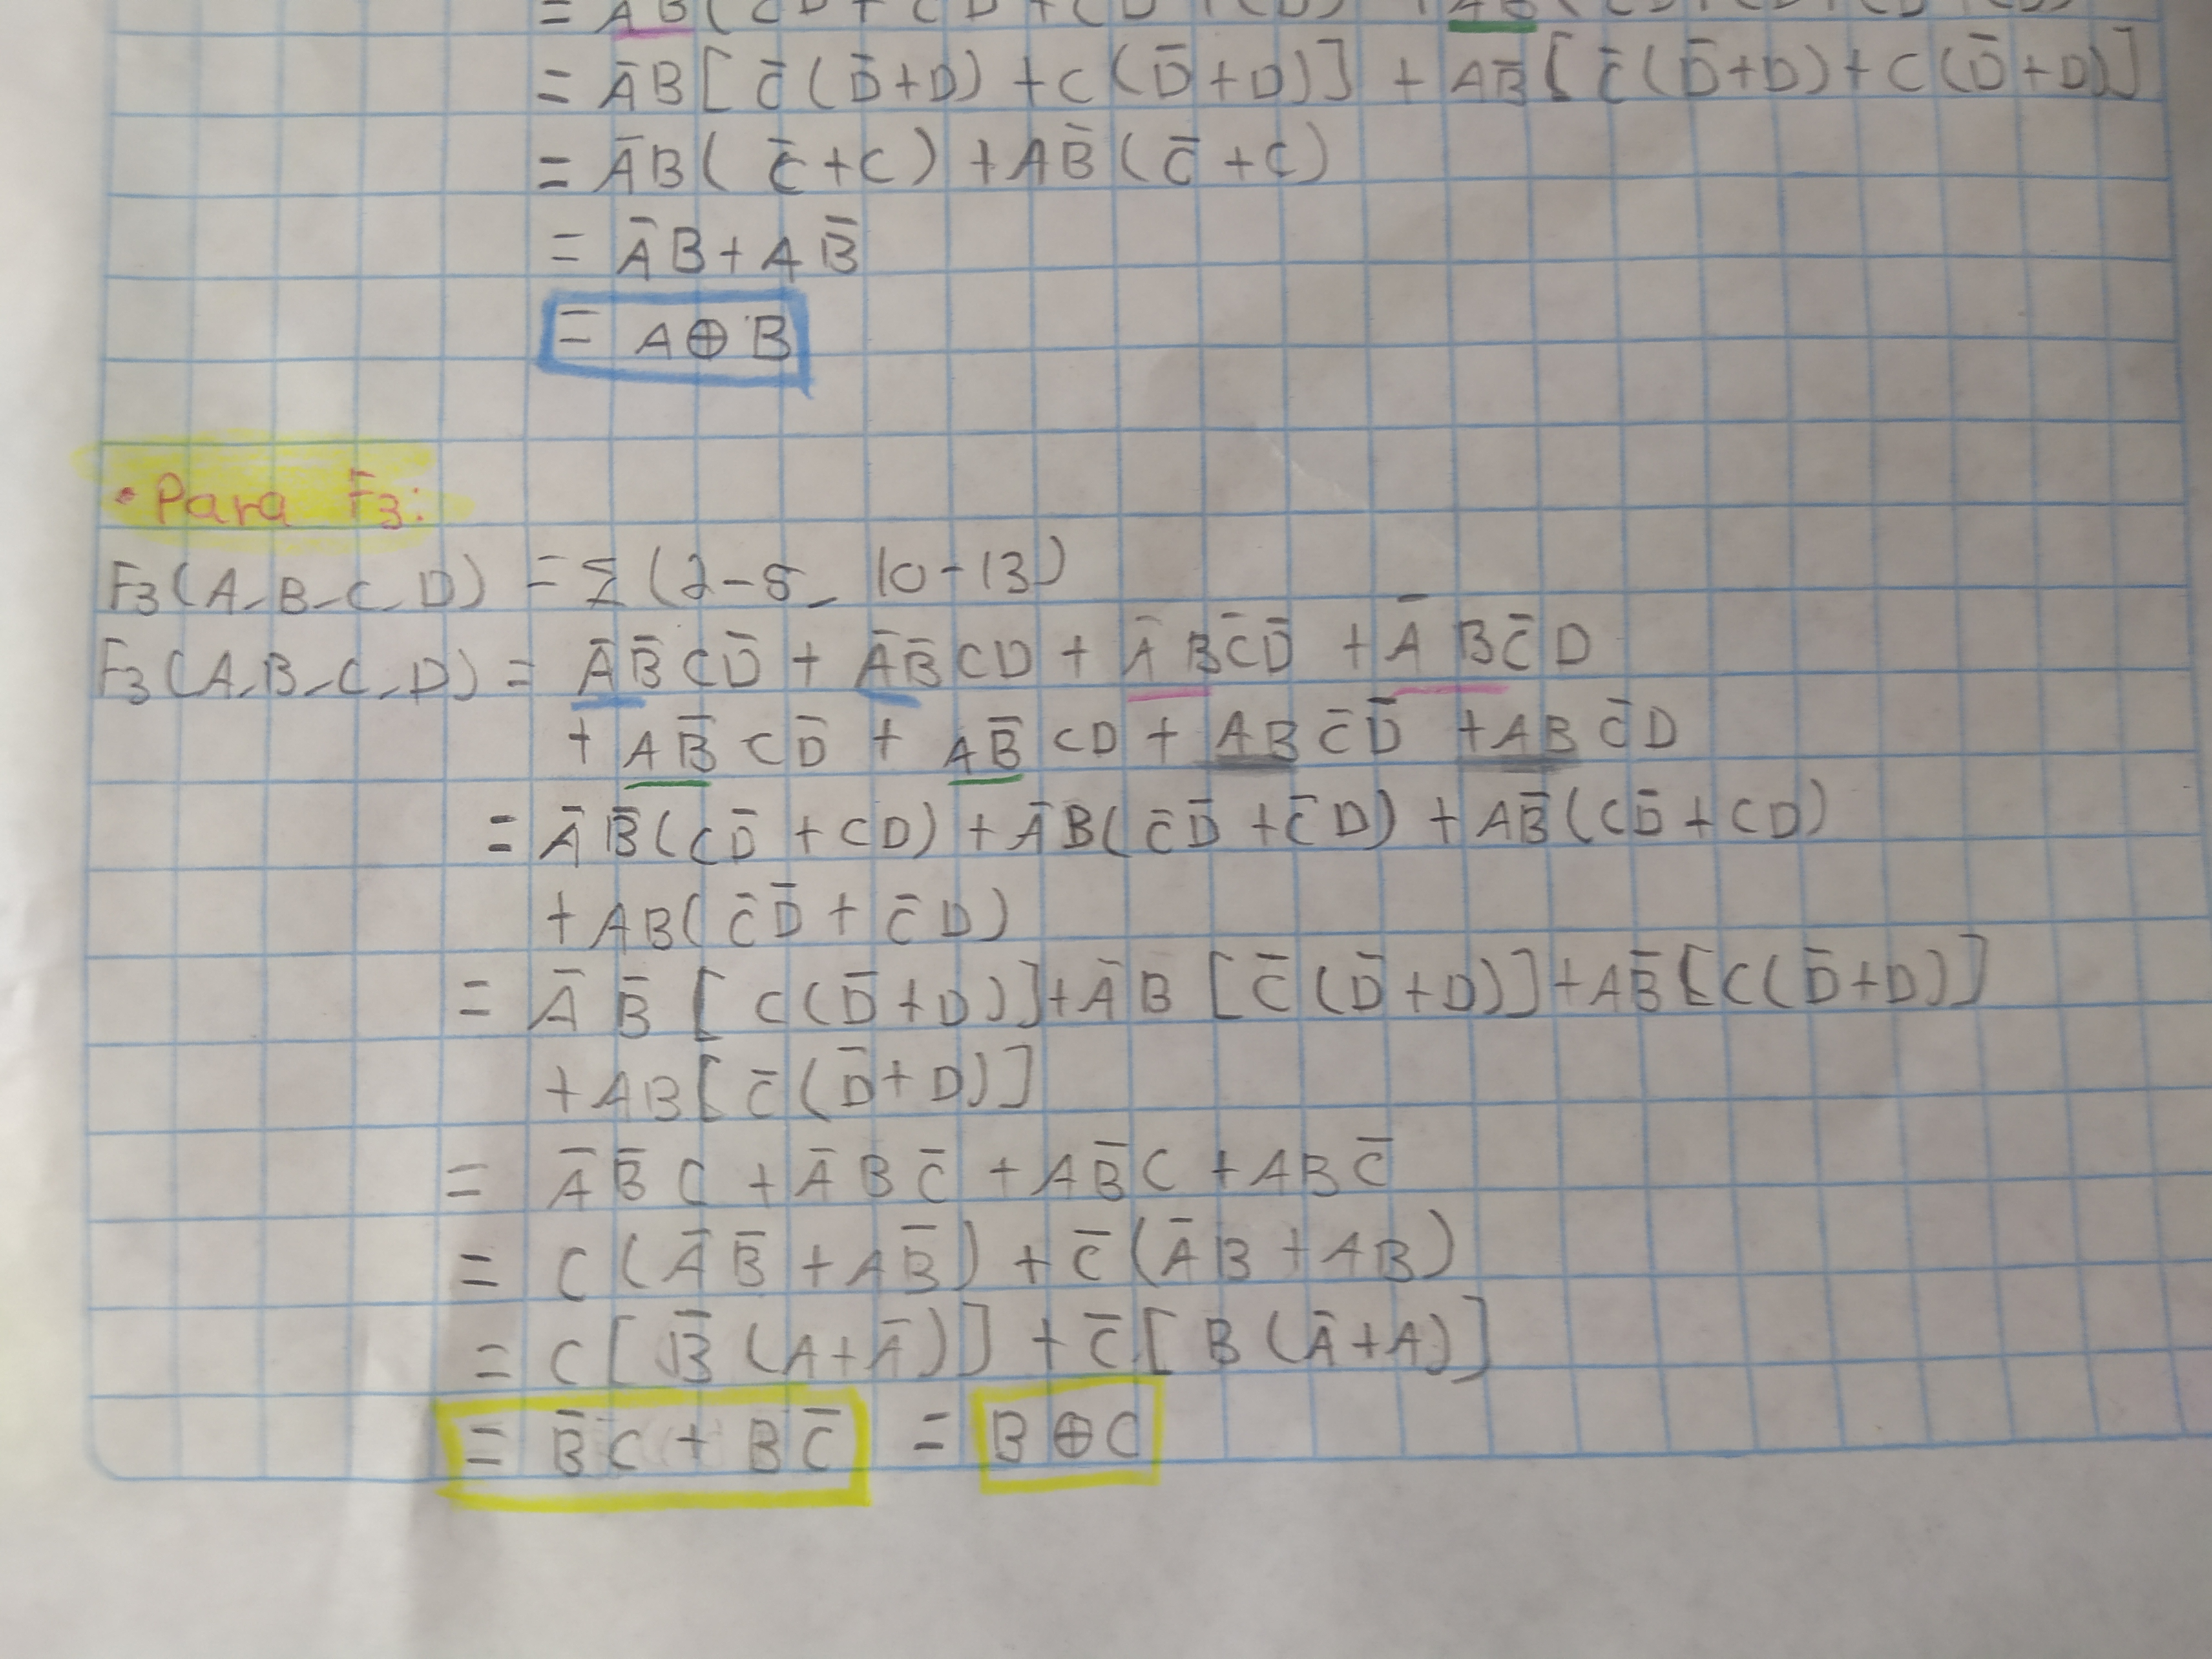 = A̅B[C̅(D̅+D) + C(D̅+D)] + AB̅[C̅(D̅+D)+C(D̅+D)]
= A̅B(C̅+C) + AB̅(C̅+C)
= A̅B + AB̅
= A⊕B
• Para F3:
F3(A-B-C-D) = Σ(2-5_ 10-13)
F3(A-B-C-D) = A̅B̅CD̅ + A̅B̅CD + A̅BC̅D̅ + A̅BC̅D
+ AB̅CD̅ + AB̅CD + ABC̅D̅ + ABC̅D
= A̅B̅(CD̅ + CD) + A̅B(C̅D̅ + C̅D) + AB̅(CD̅ + CD)
+ AB(C̅D̅ + C̅D)
= A̅B̅[C(D̅+D)] + A̅B[C̅(D̅+D)] + AB̅[C(D̅+D)]
+ AB[C̅(D̅+D)]
= A̅B̅C + A̅BC̅ + AB̅C + ABC̅
= C(A̅B̅ + AB̅) + C̅(A̅B + AB)
= C[B̅(A+A̅)] + C̅[B(A̅+A)]
= B̅C + BC̅ = B⊕C